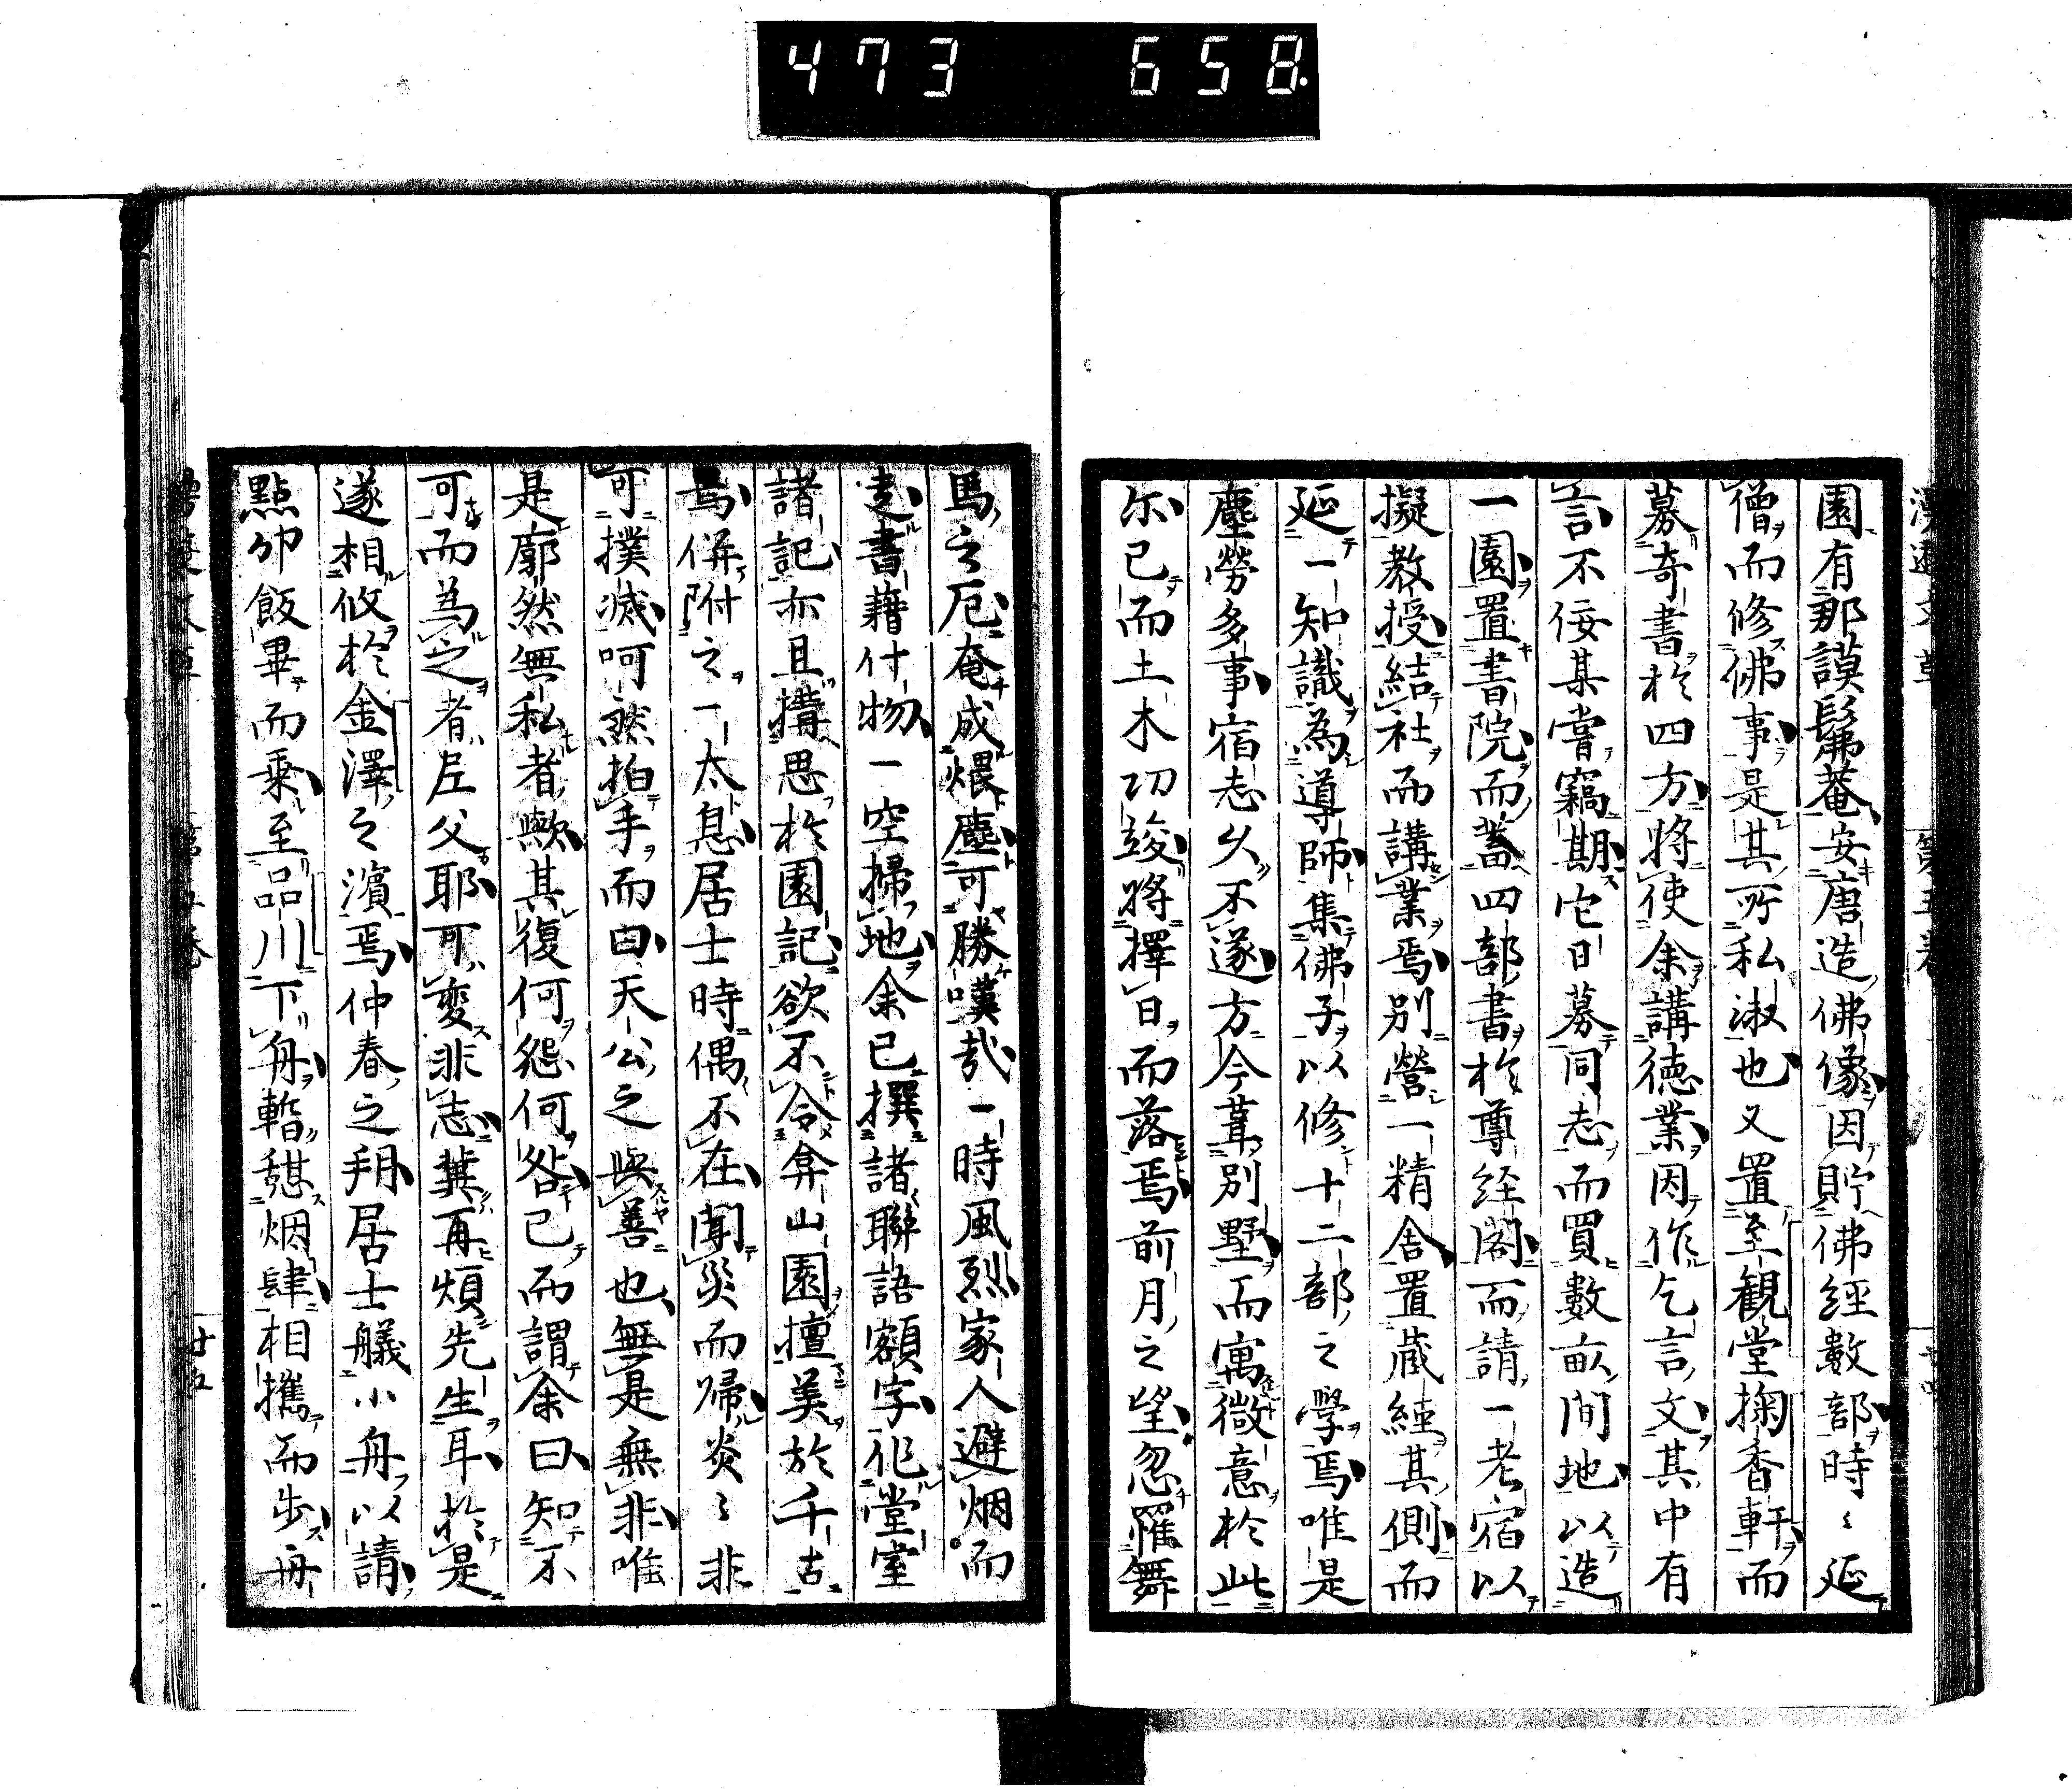 473 658
園有那謨髴菴安唐造佛像因貯佛経數部時〻延
僧而修佛事是其所私淑也又置至観堂掬香軒而
募奇書於四方將使余講徳業因作乞言文其中有
言不佞某嘗竊期它日募同志而買數畝間地以造
一園置書院而蓄四部書於尊経閣而請一老宿以
擬教授結社而講業焉別營一精舎置蔵経其側而
延一知識為導師集佛子以修十二部之學焉唯是
塵勞多事宿志久不遂方今葺別墅而寓微意於此
尓已而土木功竣將擇日而落焉前月之望忽罹舞
馬之厄奄成煨塵可勝嘆哉一時風烈家人避烟而
走書籍什物一空掃地余已撰諸聯語額字化堂室
諸記亦且搆思於園記欲不令弇山園擅美於千古
焉併附之一太息居士時偶不在聞災而帰炎〻非
可撲滅呵然拍手而曰天公之與善也無是無非唯
是廓然無私者歟其復何怨何咎已而謂余曰知不
可而為之者尼父耶可変非志冀再煩先生耳於是
遂相攸於金澤之濱焉仲春之朔居士艤小舟以請
點卯飯畢而乗至品川下舟暫憇烟肆相攜而步舟